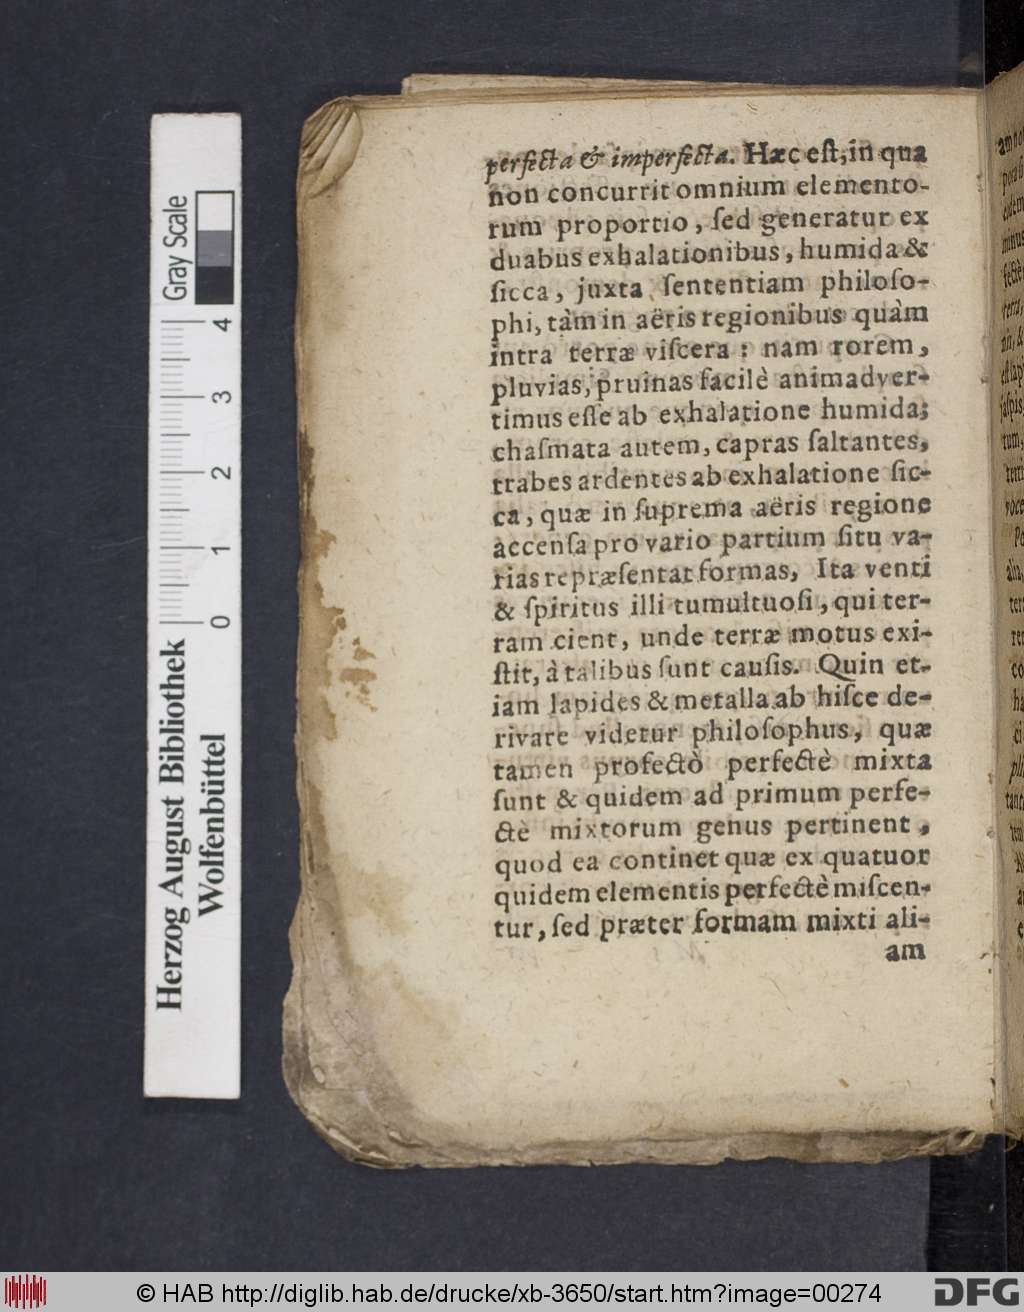 perfecta & imperfecta. Hæc eſt, in qua
non concurrit omnium elemento-
rum proportio, ſed generatur ex
duabus exhalationibus, humida &
ſicca, juxta ſententiam philoſo-
phi, tàm in aëris regionibus quàm
intra terræ viſcera: nam rorem,
pluvias, pruinas facilè animadver-
timus eſſe ab exhalatione humida;
chaſmata autem, capras ſaltantes,
trabes ardentes ab exhalatione ſic-
ca, quæ in ſuprema aëris regione
accenſa pro vario partium ſitu va-
rias repræſentat formas, Ita venti
& ſpiritus illi tumultuoſi, qui ter-
ram cient, unde terræ motus exi-
ſtit, à talibus ſunt cauſis. Quin et-
iam lapides & metalla ab hiſce de-
rivare videtur philoſophus, quæ
tamen profectò perfectè mixta
ſunt & quidem ad primum perfe-
ctè mixtorum genus pertinent,
quod ea continet quæ ex quatuor
quidem elementis perfectè miſcen-
tur, ſed præter formam mixti ali-
am
Gray Scale
0 1 2 3 4
Herzog August Bibliothek
Wolfenbüttel
© HAB http://diglib.hab.de/drucke/xb-3650/start.htm?image=00274
DFG